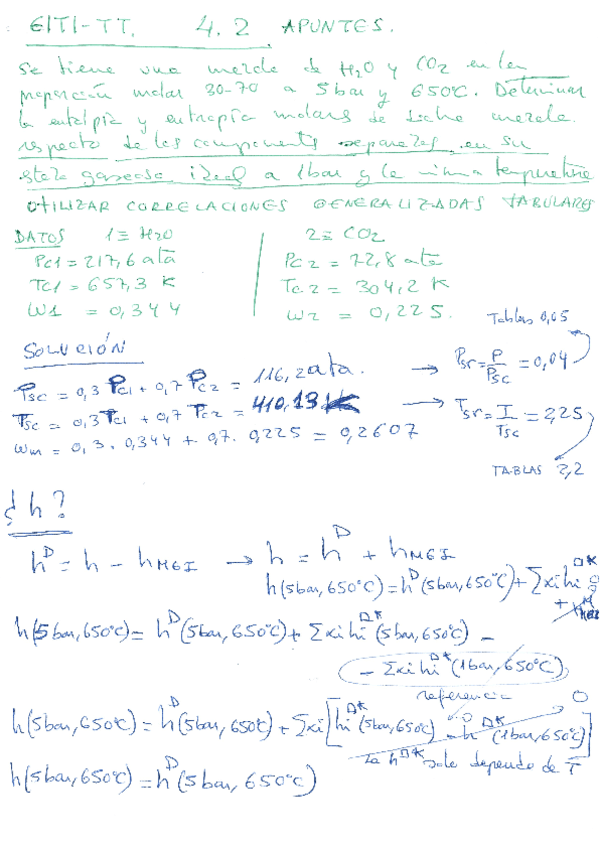 EITI-TT. 4.2 APUNTES.
Se tiene una mezcla de H₂O y CO₂ en la
proporción molar 30-70 a 5 bar y 650°C. Determinar
la entalpía y entropía molares de dicha mezcla
respecto de los componentes separados, en su
estado gaseoso ideal a 1 bar y la misma temperatura
UTILIZAR CORRELACIONES GENERALIZADAS TABULARES
DATOS 1≡ H₂O 2≡ CO₂
Pc1 = 217,6 atm Pc2 = 72,8 atm
Tc1 = 657,3 K Tc2 = 304,2 K
W1 = 0,344 W2 = 0,225.
Tablas 0,05
SOLUCIÓN
Psc = 0,3 Pc1 + 0,7 Pc2 = 116,2 atm. → Psr = P/Psc = 0,04
Tsc = 0,3 Tc1 + 0,7 Tc2 = 410,13 K → Tsr = T/Tsc = 2,25
Wm = 0,3 · 0,344 + 0,7 · 0,225 = 0,2607
TABLAS 2,2
¿h?
hᴰ = h - hMGI → h = hᴰ + hMGI
h(5bar,650°C) = hᴰ(5bar,650°C) + Σxi hi□*
h(5bar,650°C) = hᴰ(5bar,650°C) + Σxi hi□*(5bar,650°C) -
- Σxi hi□*(1bar,650°C)
referencia
h(5bar,650°C) = hᴰ(5bar,650°C) + Σxi[hi□*(5bar,650°C) - h□*(1bar,650°C)] 0
La h□* solo depende de T
h(5bar,650°C) = hᴰ(5bar,650°C)